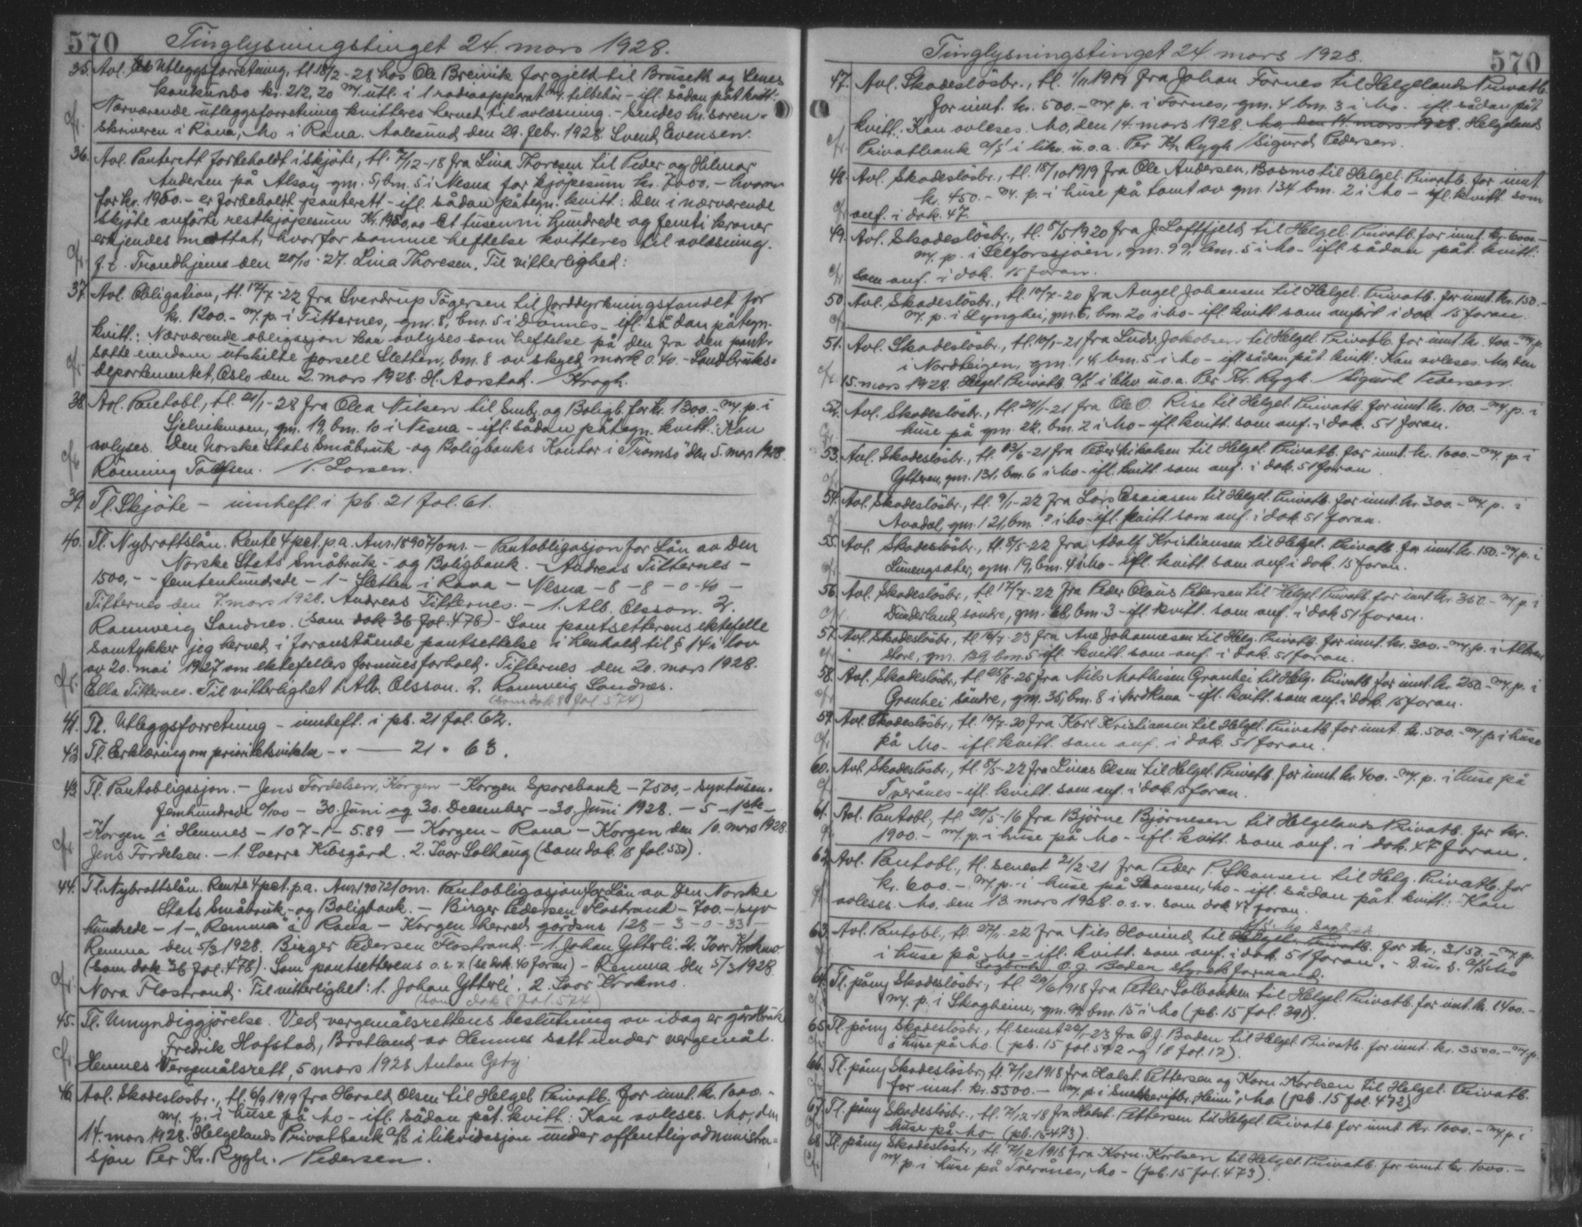 570 Tinglysningstinget 24. mars 1928.
35. Avl. Utleggsforretning, tl. 18/2-28 hos Ole Breivik for gjeld til Brüseth og Lenes
konkursbo kr. 212,20 m/. utl. i 1 radioapparat m/. tilbehör - ifl. sådan påt. kvitt:
Nærværende utleggsforretning kvitteres herved til avlæsning. - Sendes hr. soren-
skriveren i Rana, Mo i Rana. Aalesund den 29. febr. 1928. Svend Evensen.
36. Avl. Panterett forbeholdt i skjöte, tl. /12-18 fra Lina Thoresen til Peder og Hilmar
Andersen på Alsøy gm. 5, bm. 5 i Nesna for kjöpesum kr. 7000.- hvorav
for kr. 1950.- er forbeholdt panterett - ifl. sådan påtegn. kvitt: Den i nærværende
skjöte anförte restkjöpesum kr. 1950,00 Et tusen ni hundrede og femti kroner
erkjendes mottat, hvorfor samme heftelse kvitteres til avlæsning.
p.t. Trondhjem den 20/10-27. Lina Thoresen. Til vitterlighed:
37. Avl. Obligation, tl. 12/7-22 fra Sverdrup Tögersen til Jorddyrkningsfondet for
kr. 1200.- m/. p. i Titternes, gm. 8, bm. 5 i Dönnes - ifl. sådan påtegn.
kvitt: Nærværende obligasjon kan avlyses som heftelse på den fra den pant-
satte eiendom utskilte parsell Sletten, bm. 8 av skyld mark 0.40 - Landbruks-
departementet, Oslo den 2. mars 1928. H. Aarstad. / Krogh.
38. Avl. Pantobl., tl. 21/1-28 fra Olea Nilsen til Småb. og Boligb. for kr. 1300.- m/. p. i
Sjelvikmoen, gm. 19, bm. 10 i Nesna - ifl. sådan påtegn. kvitt: Kan
avlyses. Den Norske Stats Småbruk- og Boligbanks Kontor i Tromsö den 5. mars 1928.
Rönning Tollefsen. / P. Larsen.
39. Tl. Skjöte - innheft. i pb. 21 fol. 61.
40. Tl. Nybrottslån. Rente 4 pct. p.a. Anr. 18907/om. - Pantobligasjon for Lån av Den
Norske Stats Småbruk- og Boligbank. - Andreas Titternes -
1500,- - femtenhundrede - 1 - Sletten i Rana - Nesna - 8 - 8 - 0-40 -
Titternes den 7. mars 1928. Andreas Titternes. - 1. Alb. Olsson. 2.
Rannveig Sandnes. (Som dok 36 fol. 478) - Som pantsetterens ektefelle
samtykker jeg herved i foranstående pantsettelse i henhold til § 14 i lov
av 20. mai 1927 om ektefellers formuesforhold. Titternes den 20. mars 1928.
Ella Titternes. Til vitterlighet 1. Alb. Olsson. 2. Rannveig Sandnes.
(som dok 8 fol. 574)
41. Tl. Utleggsforretning - innheft. i pb. 21 fol. 62.
42. Tl. Erklæring om prioritetsvikelse - " - 21 " 63.
43. Tl. Pantobligasjon. - Jens Fordelsen, Korgen - Korgen Sparebank - 7500,- syvtusen-
femhundrede 0/100 - 30. Juni og 30. December - 30. Juni 1928. - 5 - 1ste -
Korgen i Hemnes - 107-1 - 5.89 - Korgen - Rana - Korgen den 10. mars 1928.
Jens Fordelsen. - 1. Sverre Kibsgård. 2. Ivar Solhaug (som dok. 18 fol. 530).
44. Tl. Nybrottslån. Rente 4 pct. p.a. Anr. 19072/om. Pantobligasjon for Lån av Den Norske
Stats Småbruk- og Boligbank. - Birger Pedersen Flostrand - 700.- syv
hundrede - 1 -, Remma i Rana - Korgen herred gårdsnr 128 - 3 - 0-33
Remma den 5/3 1928. Birger Pedersen Flostrand. - 1. Johan Ytterli. 2. Ivar Korkmo
(som dok 36 fol. 478). Som pantsetterens o.s.v. (se dok. 40 foran) - Remma den 5/3 1928
Nora Flostrand. Til vitterlighet: 1. Johan Ytterli. 2. Ivar Korkmo.
(som dok 8 fol. 574)
45. Tl. Umyndiggjörelse. Ved vergemålsrettens beslutning av idag er gårdbruker
Fredrik Hofstad, Bratland av Hemnes satt under vergemål.
Hemnes Vergemålsrett, 5 mars 1928 Anton
46. Avl. Skadeslösbr., tl. 6/9 1919 fra Harald Olsen til Helgel. Privatb. for inntil kr. 1000.-
m/. p. i huse på Mo - ifl. sådan påt. kvitt: Kan avleses. Mo, den
14. mars 1928. Helgelands Privatbank A/S i likvidasjon under offentlig administra-
sjon Per Kr. Rygh. / Pedersen.
Tinglysningstinget 24 mars 1928. 570
47. Avl. Skadeslösbr., tl. 1/11 1919 fra Johan Fornes til Helgelands Privatb.
for innt. kr. 500.- m/. p. i Fornes, gm. 4 bm. 3 i Mo - ifl. sådan påt.
kvitt. Kan avleses. Mo, den 14 mars 1928. Mo, den 14 mars 1928. Helgelands
Privatbank A/S i likv. u.o.a. Per Kr. Rygh / Sigurd Pedersen.
48. Avl. Skadeslösbr., tl. 18/10 1919 fra Ole Andersen, Basmo til Helgel. Privatb. for innt
kr. 450.- m/. p. i huse på tomt av gm. 134 bm. 2 i Mo - ifl. kvitt. som
anf. i dok. 47
49. Avl. Skadeslösbr., tl. 5/5 1920 fra J. Loftfjeld til Helgel. Privatb. for innt kr. 6000.-
m/. p. i Selforssjöen, gm. 99, bm. 5 i Mo - ifl. sådan påt. kvitt.
som anf. i dok. 15 foran.
50. Avl. Skadeslösbr., tl. 10/7-20 fra Angel Johansen til Helgel. Privatb. for innt. kr. 150.-
m/. p. i Lynghei, gm. 6, bm. 20 i Mo - ifl. kvitt som anfört i dok. 15 foran.
51. Avl. Skadeslösbr., tl. 10/1-21 fra Ludv. Jakobsen til Helgel. Privatb. for innt. kr. 400.- m/. p.
i Nordheigen, gm. 14 bm. 5 i Mo - ifl. sådan påt. kvitt: Kan avleses. Mo, den
15. mars 1928. Helgel. Privatb. A/S i likv. u.o.a. Per Kr. Rygh. / Sigurd Pedersen.
52. Avl. Skadeslösbr., tl. 24/1-21 fra Ole O. Rise til Helgel. Privatb. for innt. kr. 100.- m/. p. i
huse på gm. 24, bm. 2 i Mo - ifl. kvitt. som anf. i dok. 51 foran.
53. Avl. Skadeslösbr., tl. 23/6-21 fra Peder Mikalsen til Helgel. Privatb. for innt. kr. 1000.- m/. p. i
Ytteren, gm. 131, bm. 6 i Mo - ifl. kvitt som anf. i dok. 51 foran.
54. Avl. Skadeslösbr., tl. 9/1-22 fra Lars Esaiasen til Helgel. Privatb. for innt. kr. 300.- m/. p. i
Avadal, gm. 121, bm. 2 i Mo - ifl. kvitt som anf. i dok. 51 foran.
55. Avl. Skadeslösbr., tl. 8/5-22 fra Adolf Kristiansen til Helgel. Privatb. for innt. kr. 150.- m/. p. i
gm. 19, bm. 4 i Mo - ifl. kvitt som anf. i dok. 15 foran.
56. Avl. Skadeslösbr., tl. 17/7-22 fra Peder Olaus Pedersen til Helgel. Privatb. for innt kr. 350.- m/. p. i
Dunderland söndre, gm. 68, bm. 3 - ifl. kvitt. som anf. i dok 51 foran.
57. Avl. Skadeslösbr., tl. 10/7-23 fra Ane Johannesen til Helg. Privatb. for innt. kr. 300.- m/. p. i
store, gm. 129, bm. 5 ifl. kvitt som anf. i dok. 51 foran.
58. Avl. Skadeslösbr., tl. 25/8-25 fra Nils Mathisen Granhei til Helg. Privatb. for innt kr. 250.- m/. p. i
Granhei söndre, gm. 35, bm. 8 i Nordrana - ifl. kvitt. som anf. i dok. 15 foran.
59. Avl. Skadeslösbr., tl. 10/7-20 fra Karl Kristiansen til Helgel. Privatb. for innt. kr. 500.- m/. p. i huse
på Mo - ifl. kvitt som anf. i dok. 51 foran.
60. Avl. Skadeslösbr., tl. 8/5-22 fra Linus Olsen til Helgel. Privatb. for innt kr. 400.- m/. p. i huse på
Tverånes - ifl. kvitt som anf. i dok. 15 foran.
61. Avl. Pantobl., tl. 20/5-16 fra Björne Björnesen til Helgelands Privatb. for kr.
1900.- m/. p. i huse på Mo - ifl. kvitt. som anf. i dok. 47 foran.
62. Avl. Pantobl., tl. senest 21/2-21 fra Peder P. Skansen til Helg. Privatb. for
kr. 600.- m/. p. i huse på Skansen, Mo - ifl. sådan påt. kvitt. - Kan
avleses. Mo, den 13 mars 1928 o.s.v. som dok 47 foran.
63. Avl. Pantobl., tl. 27/1-22 fra Nils Havind til Helgelands Privatb. for kr. 3150.- m/. p.
i huse på Mo - ifl. kvitt. som anf. i dok. 51 foran. - D.u.s. A/S Mo
O.J. Boden styrets formand.
64. Tl. påny Skadeslösbr., tl. 29/6 1918 fra Petter Solbakken til Helgel. Privatb. for innt. kr. 1400.-
m/. p. i Skogheim, gm. 99 bm. 15 i Mo (pb. 15 fol. 391).
65. Tl. påny Skadeslösbr., tl. senest 20/1-23 fra O.J. Boden til Helgel. Privatb. for innt. kr. 3500.- m/. p.
i huse på Mo. (pb. 15 fol. 592 og 18 fol. 17).
66. Tl. påny Skadeslösbr., tl. 7/12 1918 fra Halst. Pettersen og Korn. Karlsen til Helgel. Privatb.
for innt. kr. 5500.- m/. p. i Snekkerifabr. Heim, Mo (pb. 15 fol. 472)
67. Tl. påny Skadeslösbr., tl. 7/12-18 fra Halst. Pettersen til Helgel. Privatb. for innt. kr. 1000.- m/. p. i
huse på Mo - (pb. 15-473).
68. Tl. påny Skadeslösbr., tl. 7/12 1918 fra Korn. Karlsen til Helgel. Privatb. for innt kr. 1000.-
m/. p. i huse på Tverånes, Mo - (pb. 15 fol. 473).